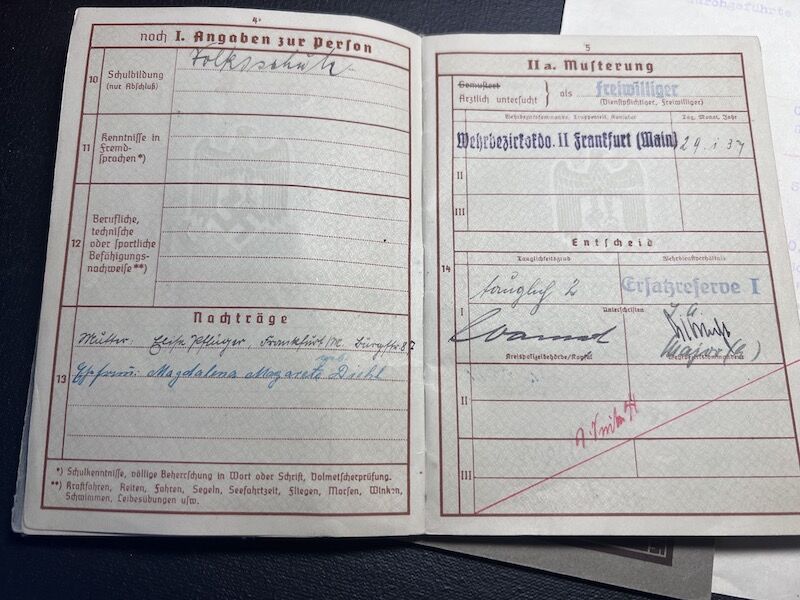 durchgeführte
4
noch I. Angaben zur Person
10
Schulbildung
(nur Abschluß)
Volksschule
11
Kenntnisse in
Fremd-
sprachen*)
12
Berufliche,
technische
oder sportliche
Befähigungs-
nachweise**)
Nachträge
13
Mutter: Elise Pflüger, Frankfurt/M. Burgstr. 87
geb.
Ehefrau: Magdalena Magarete Diehl
*) Schulkenntnisse, völlige Beherrschung in Wort oder Schrift, Dolmetscherprüfung.
**) Kraftfahren, Reiten, Fahren, Segeln, Seefahrtzeit, Fliegen, Morsen, Winken,
Schwimmen, Leibesübungen usw.
5
IIa. Musterung
Gemustert
Ärztlich untersucht } als freiwilliger
(Dienstpflichtiger, Freiwilliger)
Tag, Monat, Jahr
Wehrbezirkskdo. II Frankfurt (Main) 29. 1. 37
II
III
Entscheid
14
Tauglichkeitsgrad
Wehrdienstverhältnis
I
tauglich 2
Ersatzreserve I
Unterschriften
Major
Kreispolizeibehörde/
II
III